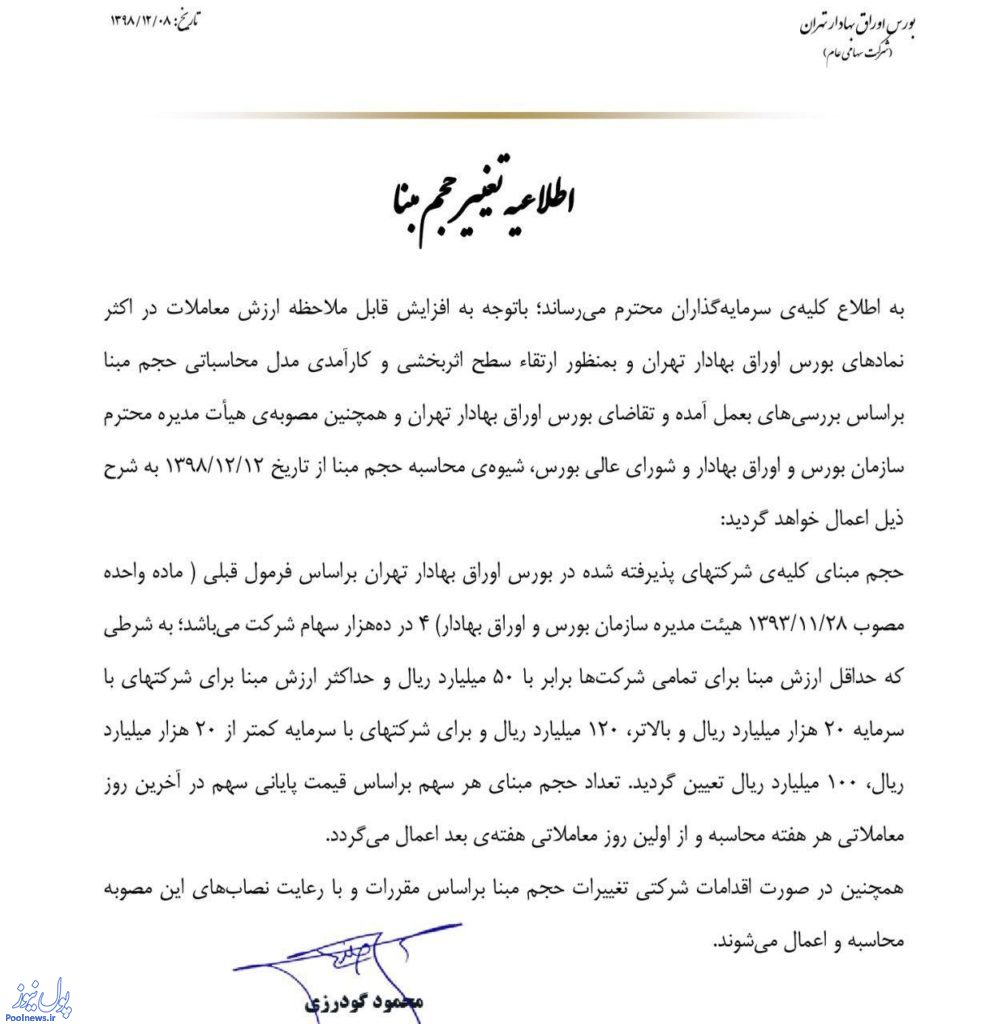 بورس اوراق بهادار تهران
(شرکت سهامی عام)
تاریخ: ۱۳۹۸/۱۲/۰۸
اطلاعیه تغییر حجم مبنا
به اطلاع کلیه‌ی سرمایه‌گذاران محترم می‌رساند؛ باتوجه به افزایش قابل ملاحظه ارزش معاملات در اکثر
نمادهای بورس اوراق بهادار تهران و بمنظور ارتقاء سطح اثربخشی و کارآمدی مدل محاسباتی حجم مبنا
براساس بررسی‌های بعمل آمده و تقاضای بورس اوراق بهادار تهران و همچنین مصوبه‌ی هیأت مدیره محترم
سازمان بورس و اوراق بهادار و شورای عالی بورس، شیوه‌ی محاسبه حجم مبنا از تاریخ ۱۳۹۸/۱۲/۱۲ به شرح
ذیل اعمال خواهد گردید:
حجم مبنای کلیه‌ی شرکتهای پذیرفته شده در بورس اوراق بهادار تهران براساس فرمول قبلی ( ماده واحده
مصوب ۱۳۹۳/۱۱/۲۸ هیئت مدیره سازمان بورس و اوراق بهادار) ۴ در ده‌هزار سهام شرکت می‌باشد؛ به شرطی
که حداقل ارزش مبنا برای تمامی شرکت‌ها برابر با ۵۰ میلیارد ریال و حداکثر ارزش مبنا برای شرکتهای با
سرمایه ۲۰ هزار میلیارد ریال و بالاتر، ۱۲۰ میلیارد ریال و برای شرکتهای با سرمایه کمتر از ۲۰ هزار میلیارد
ریال، ۱۰۰ میلیارد ریال تعیین گردید. تعداد حجم مبنای هر سهم براساس قیمت پایانی سهم در آخرین روز
معاملاتی هر هفته محاسبه و از اولین روز معاملاتی هفته‌ی بعد اعمال می‌گردد.
همچنین در صورت اقدامات شرکتی تغییرات حجم مبنا براساس مقررات و با رعایت نصاب‌های این مصوبه
محاسبه و اعمال می‌شوند.
محمود گودرزی
پول نیوز
Poolnews.ir